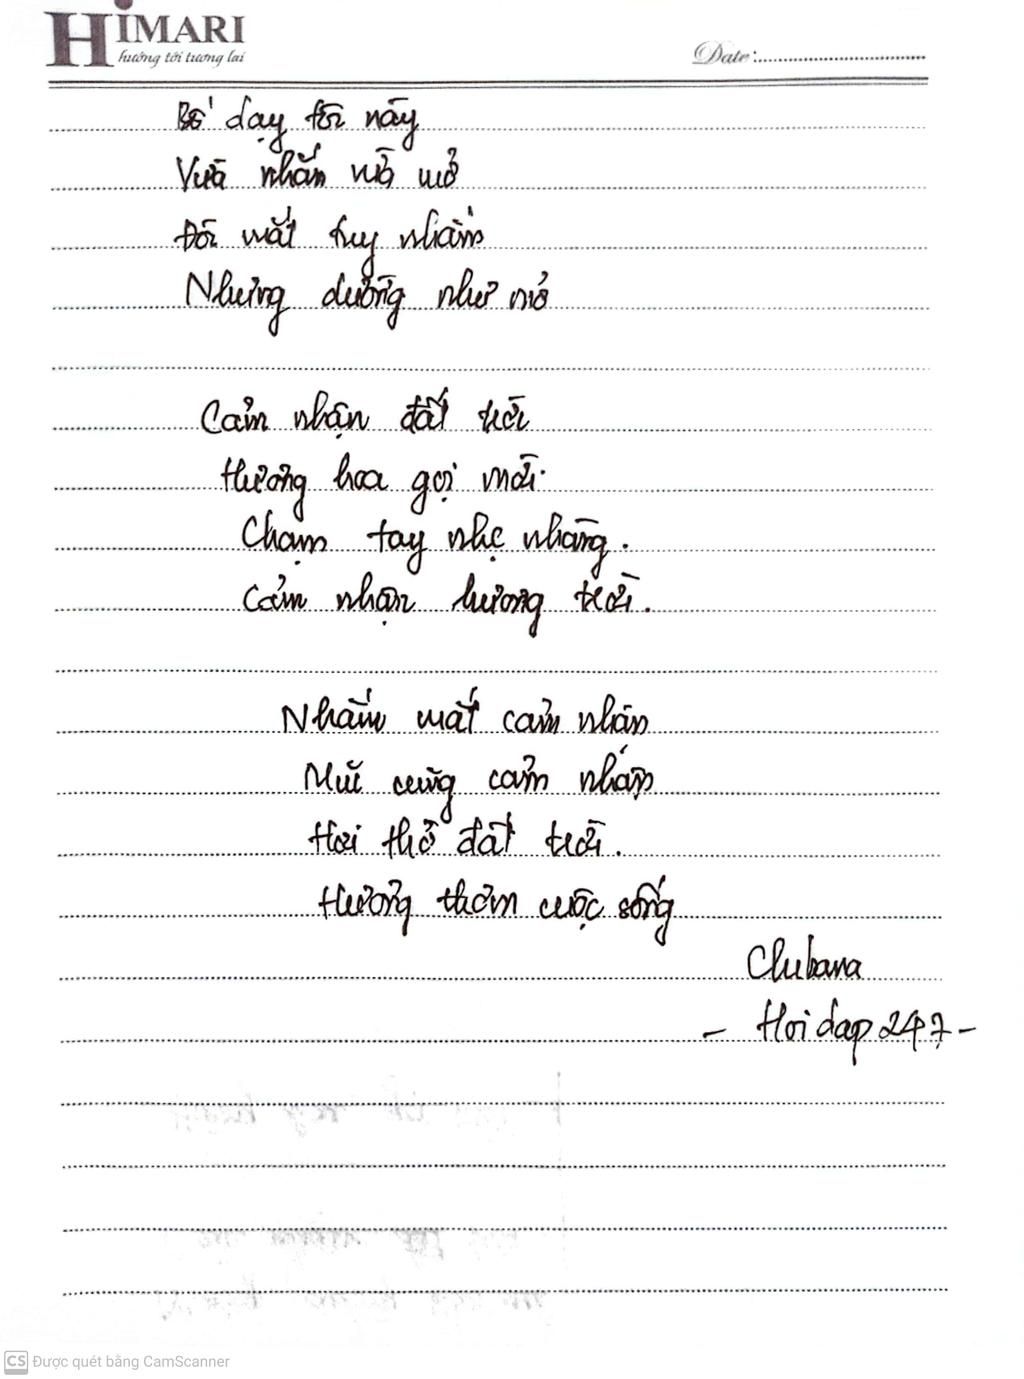 HIMARI
hướng tới tương lai
Date:
Bố dạy tôi này
Vừa nhắm vừa mở
Đôi mắt tuy nhắm
Nhưng dường như mở
Cảm nhận đất trời
Hương hoa gọi mời.
Chạm tay nhẹ nhàng.
Cảm nhận hương trời.
Nhắm mắt cảm nhận
Mũi cũng cảm nhận
Hơi thở đất trời.
Hương thơm cuộc sống
Chubana
- Hoidap247 -
CS Được quét bằng CamScanner